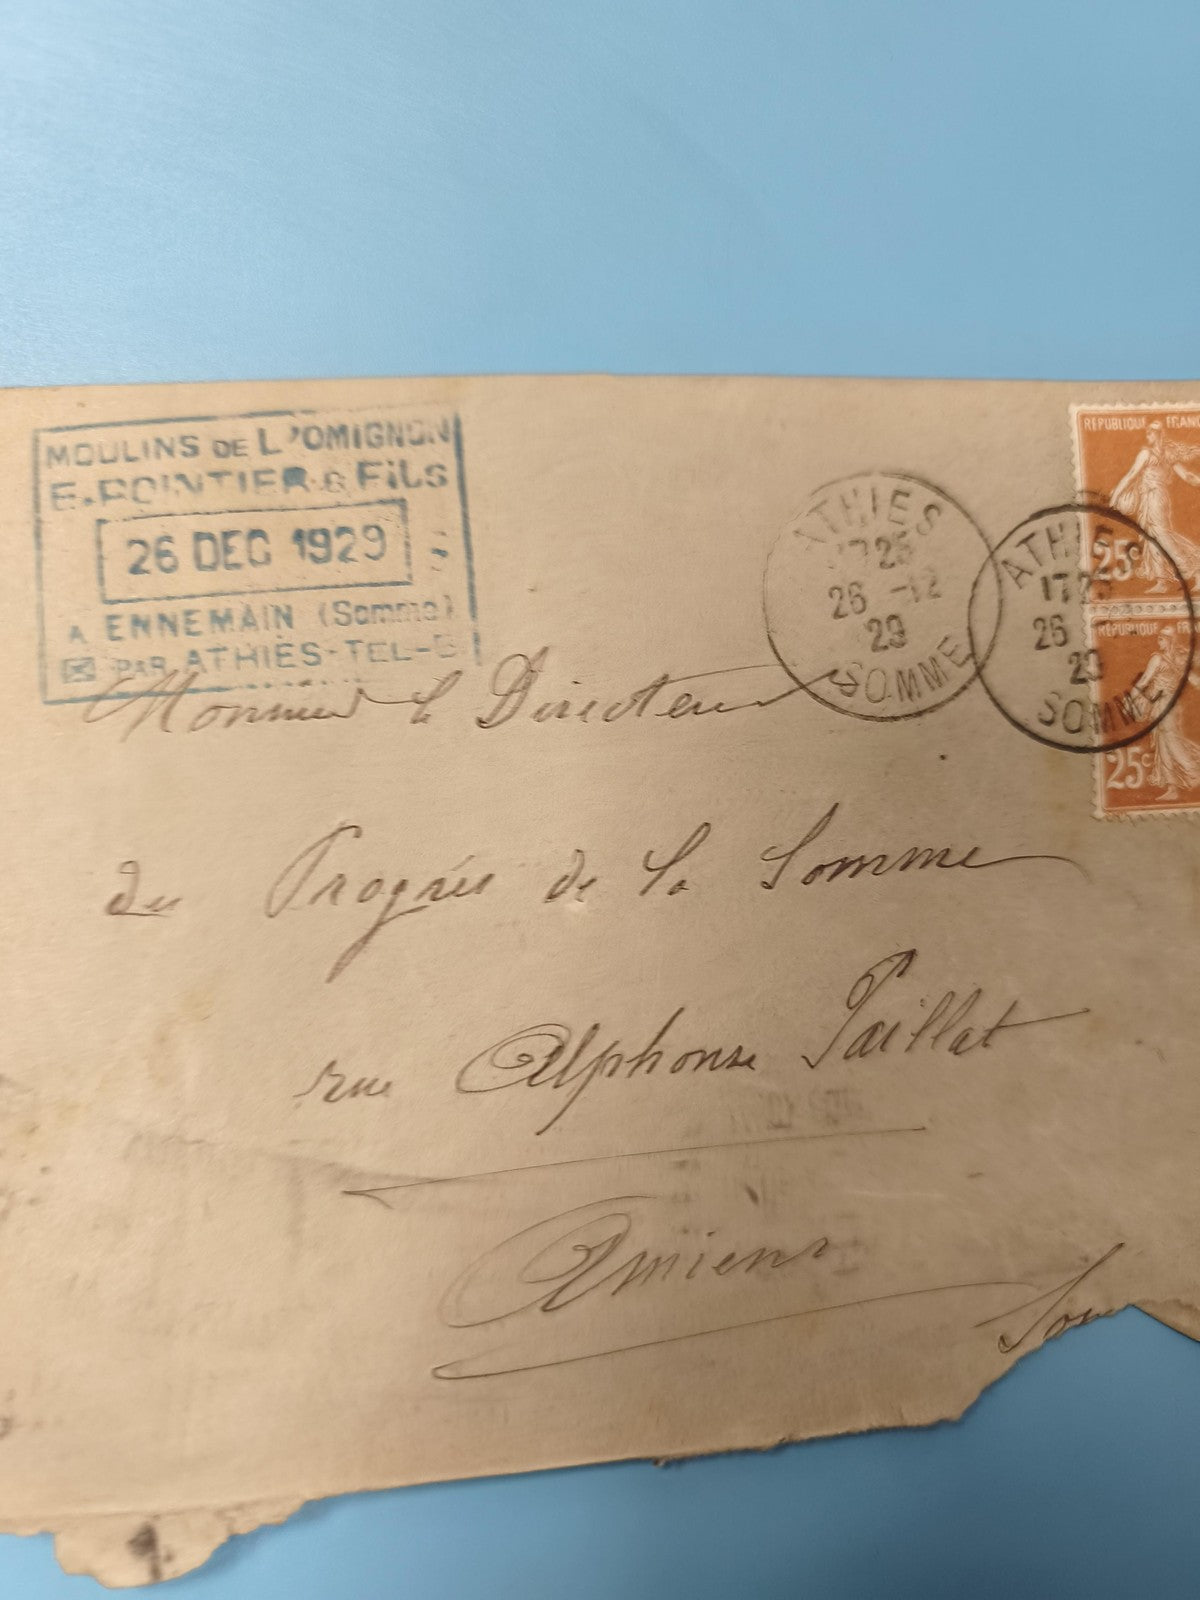 MOULINS DE L'OMIGNON
E. POINTIER & FILS
26 DEC 1929
A ENNEMAIN (Somme)
PAR ATHIES-TEL-
ATHIES
17 25
26 -12
29
SOMME
ATHIES
17 25
26
29
SOMME
REPUBLIQUE FRANC
25c
REPUBLIQUE FR
25c
Monsieur le Directeur
du Progrès de la Somme
rue Alphonse Paillat
Amiens
Som